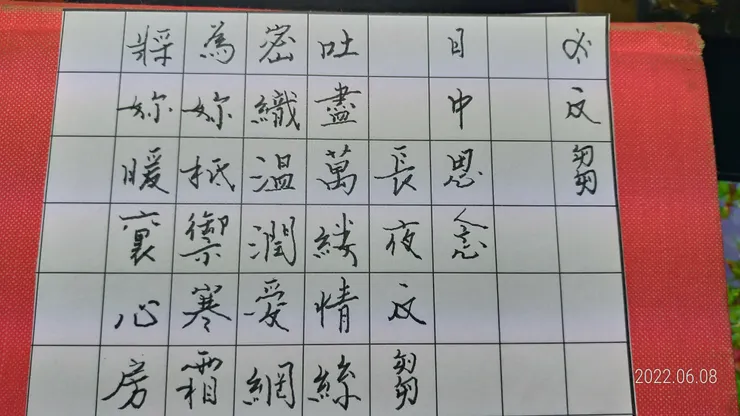 反芻
日中思念
長夜反芻
吐盡萬縷情絲
密織溫潤愛網
為妳抵禦寒霜
將妳暖裹心房
2022.06.08